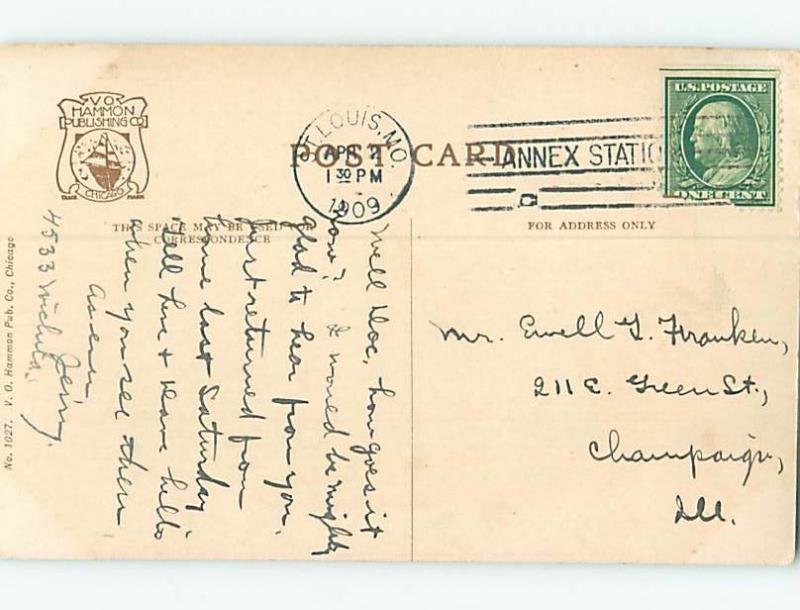 V O
HAMMON
PUBLISHING CO
CHICAGO
TRADE MARK
POST CARD
ST. LOUIS, MO.
APR 2
1 30 PM
1909
ANNEX STATIO
U.S. POSTAGE
ONE CENT
THIS SPACE MAY BE USED FOR
CORRESPONDENCE
FOR ADDRESS ONLY
Well Doc, how goes it
now? I would be mighty
glad to hear from you.
Just returned from
home last Saturday
Tell Line & Dave hello
when you see them
As ever
Jerry.
4533 Wichita.
Mr. Ewell G. Franken,
211 E. Green St.,
Champaign,
Ill.
No. 1027. V. O. Hammon Pub. Co., Chicago